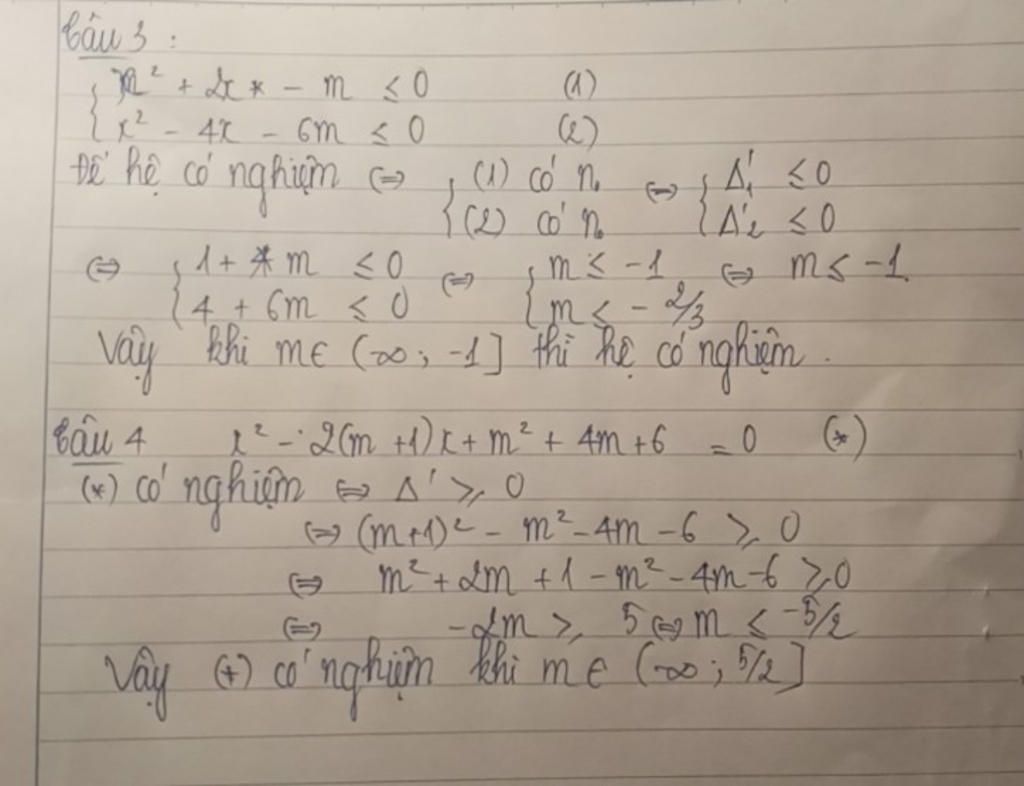 Câu 3 :
{ x² + 2x - m ≤ 0 (1)
{ x² - 4x - 6m ≤ 0 (2)
Để hệ có nghiệm ⇔ { (1) có n₀ ⇔ { Δ'₁ ≤ 0
{ (2) có n₀ { Δ'₂ ≤ 0
⇔ { 1 + m ≤ 0 ⇔ { m ≤ -1 ⇔ m ≤ -1
{ 4 + 6m ≤ 0 { m ≤ - 2/3
Vậy khi m ∈ (-∞ ; -1] thì hệ có nghiệm .
Câu 4 x² - 2(m +1)x + m² + 4m + 6 = 0 (*)
(*) có nghiệm ⇔ Δ' ≥ 0
⇔ (m+1)² - m² - 4m - 6 ≥ 0
⇔ m² + 2m + 1 - m² - 4m - 6 ≥ 0
⇔ -2m ≥ 5 ⇔ m ≤ -5/2
Vậy (*) có nghiệm khi m ∈ (-∞ ; 5/2]